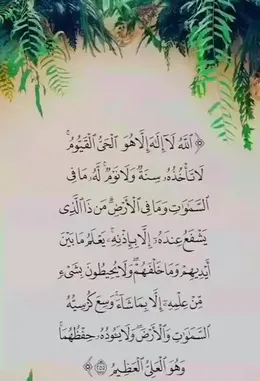 ﴿ ٱللَّهُ لَآ إِلَٰهَ إِلَّا هُوَ ٱلْحَىُّ ٱلْقَيُّومُ ۚ
لَا تَأْخُذُهُۥ سِنَةٌ وَلَا نَوْمٌ ۚ لَّهُۥ مَا فِى
ٱلسَّمَٰوَٰتِ وَمَا فِى ٱلْأَرْضِ ۗ مَن ذَا ٱلَّذِى
يَشْفَعُ عِندَهُۥٓ إِلَّا بِإِذْنِهِۦ ۚ يَعْلَمُ مَا بَيْنَ
أَيْدِيهِمْ وَمَا خَلْفَهُمْ ۖ وَلَا يُحِيطُونَ بِشَىْءٍ
مِّنْ عِلْمِهِۦٓ إِلَّا بِمَا شَآءَ ۚ وَسِعَ كُرْسِيُّهُ
ٱلسَّمَٰوَٰتِ وَٱلْأَرْضَ ۖ وَلَا يَـُٔودُهُۥ حِفْظُهُمَا ۚ
وَهُوَ ٱلْعَلِىُّ ٱلْعَظِيمُ ٢٥٥ ﴾